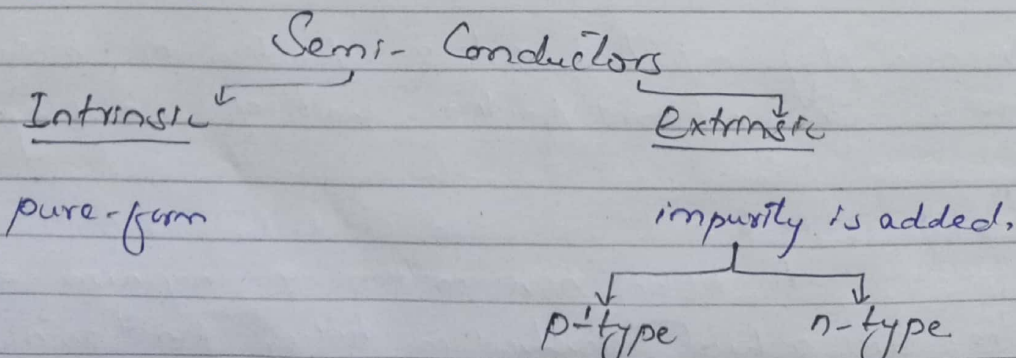 Semi- Conductors
Intrinsic extrinsic
pure-form impurity is added.
p-type n-type